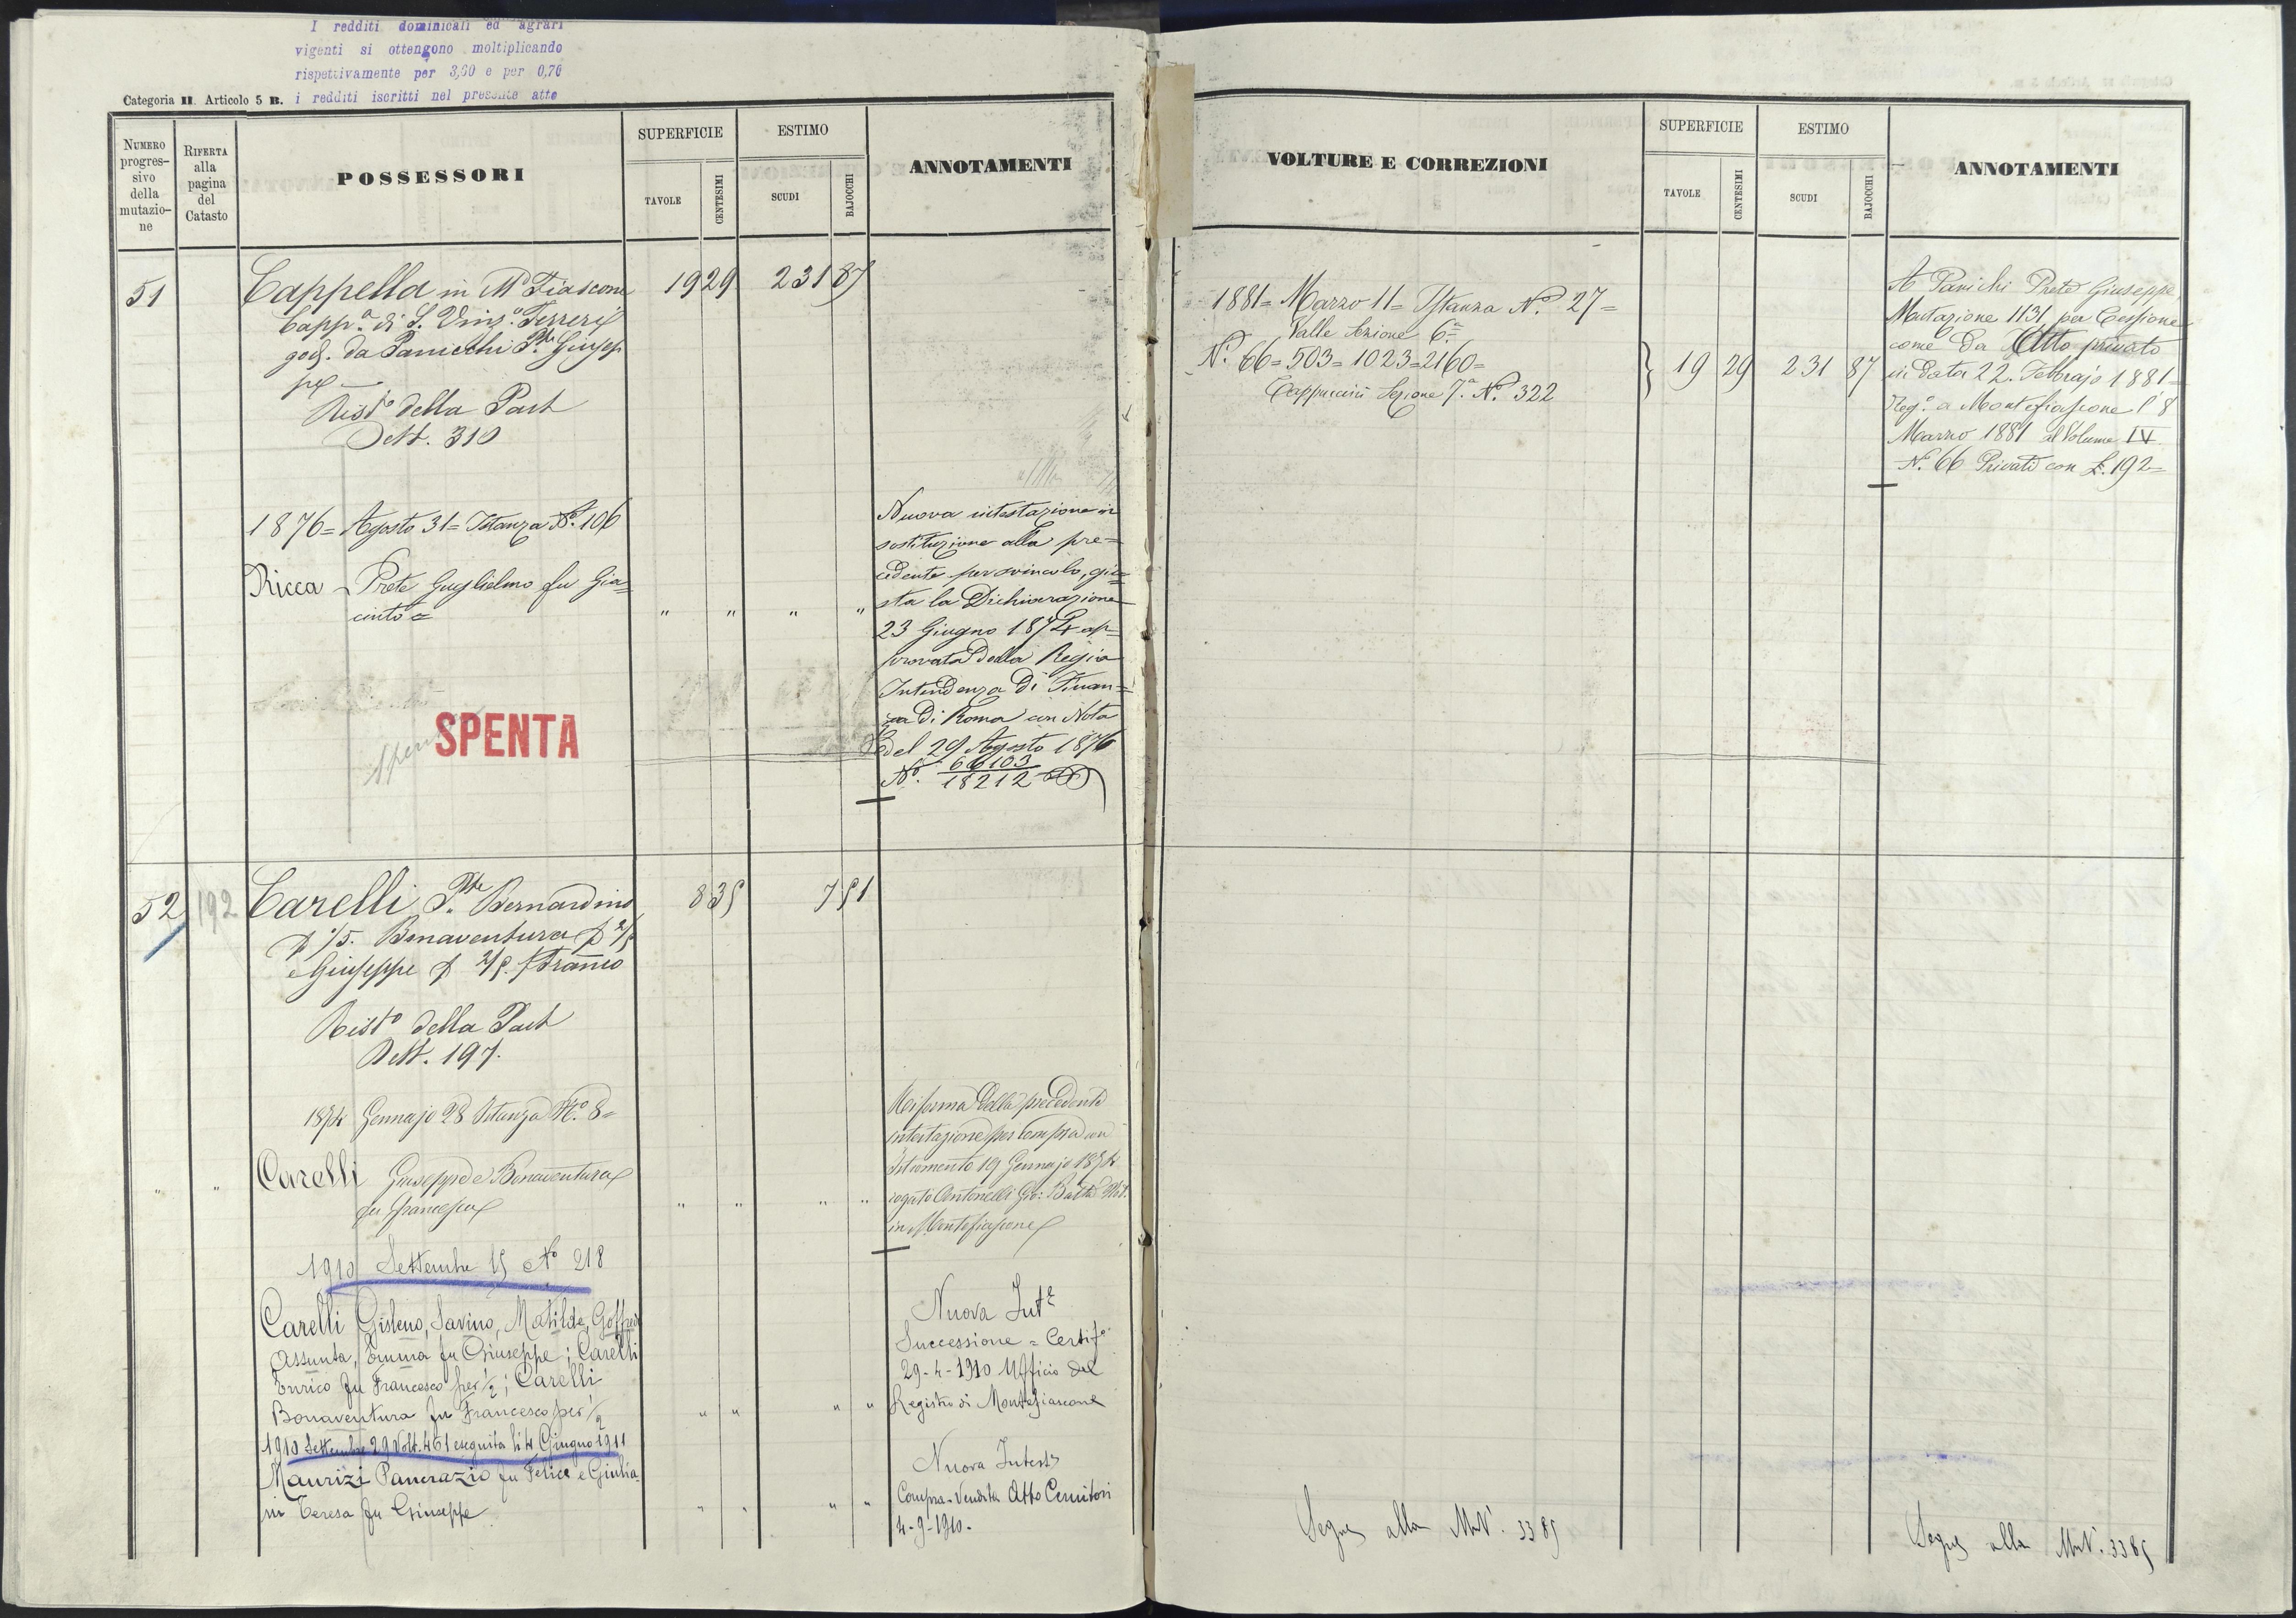 I redditi dominicali ed agrari
vigenti si ottengono moltiplicando
rispettivamente per 3,60 e per 0,70
i redditi iscritti nel presente atto
Categoria II Articolo 5 B.
NUMERO progressivo della mutazione
RIFERTA alla pagina del Catasto
POSSESSORI
SUPERFICIE
TAVOLE
CENTESIMI
ESTIMO
SCUDI
BAJOCCHI
ANNOTAMENTI
51
Cappella in M. Fiascone
Capp.a di S. Vinz.o Ferreri
god. da Panicchi P.te Giusep
pe
Rist.o della Part
Dett. 310
19 29 231 87
1876 = Agosto 31 = Istanza N.o 106
Ricca - Prete Guglielmo fu Gia=
cinto =
" " " "
Nuova intestazione in
sostituzione alla pre=
cedente per svincolo, giu=
sta la Dichiarazione
23 Giugno 1874 ap=
provata dalla Regia
Intendenza di Finan=
za di Roma con Nota
del 29 Agosto 1876
N.o 66103
18212
SPENTA
52 192
Carelli P.te Bernardino
p 1/5. Bonaventura p 2/5
e Giuseppe p 2/5. f Franco
Rist.o della Part
Dett. 197.
8 35 7 51
1874 Gennajo 28 Istanza N.o 8 =
" "
Carelli Giuseppe e Bonaventura
fu Francesco
" " " "
Riforma della precedente
intestazione per compra con
Istromento 19 Gennajo 1874
rogato Antonelli Gio: Batta Not.
in Montefiascone
1910 Settembre 15 N.o 218
Carelli Gisleno, Savino, Matilde, Goffredo
Assunta, Emma fu Giuseppe; Carelli
Enrico fu Francesco per 1/2; Carelli
Bonaventura fu Francesco per 1/2
" " " "
Nuova Int.e
Successione = Certif.o
29-4-1910 Ufficio del
Registro di Montefiascone
1910 Settembre 29 Volt. 461 eseguita li 4 Giugno 1911
Maurizi Pancrazio fu Felice e Giulia-
ni Teresa fu Giuseppe
" " " "
Nuova Intest.
Compra-Vendita Atto Cernitori
4-9-1910.
VOLTURE E CORREZIONI
SUPERFICIE
TAVOLE
CENTESIMI
ESTIMO
SCUDI
BAJOCCHI
ANNOTAMENTI
1881 = Marzo 11 = Istanza N.o 27 =
Valle Sezione 6.a
N.o 66 = 503 = 1023 = 2160 =
Cappuccini Sezione 7.a N.o 322
19 29 231 87
A Panichi Prete Giuseppe
Mutazione 1131 per Cessione
come da Atto privato
in data 22. Febbrajo 1881 =
Reg.o a Montefiascone l' 8
Marzo 1881 al Volume IV
N.o 66 Privati con £. 192 =
Segue alla M.N. 3385
Segue alla M.N. 3385